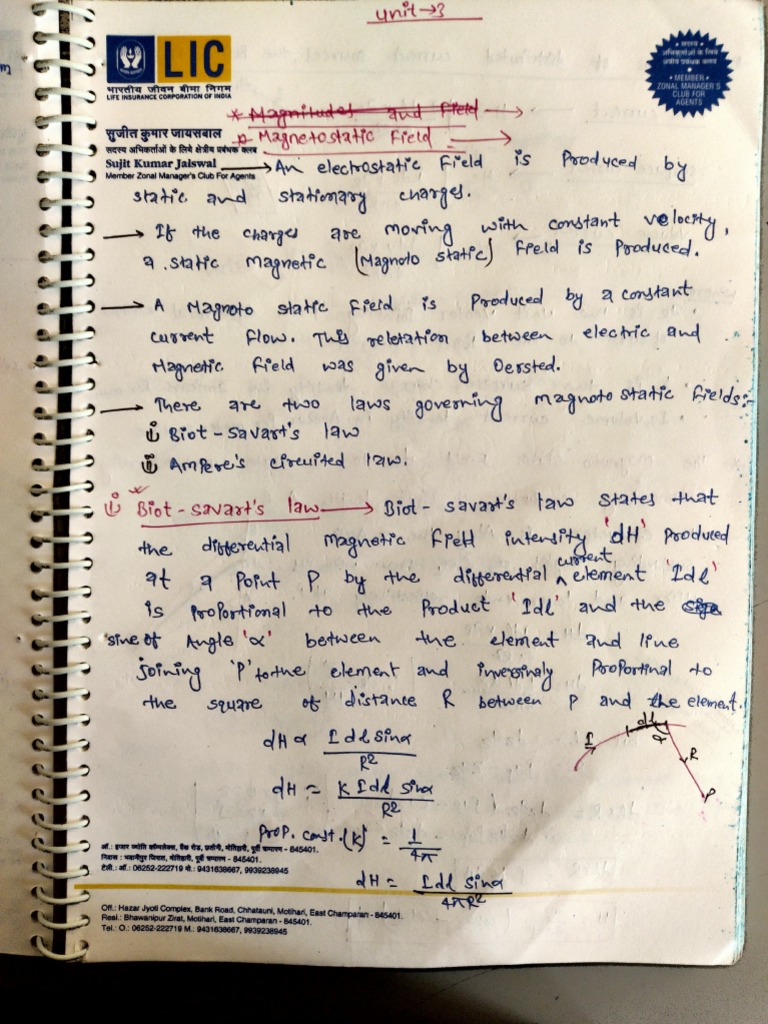 unit→3
LIC
भारतीय जीवन बीमा निगम
LIFE INSURANCE CORPORATION OF INDIA
सदस्य
अभिकर्ताओं के लिये
क्षेत्रीय प्रबंधक क्लब
MEMBER
ZONAL MANAGER'S
CLUB FOR
AGENTS
* Magnitudes and Field →
* Magnetostatic Field →
सुजीत कुमार जायसवाल
सदस्य अभिकर्ताओं के लिये क्षेत्रीय प्रबंधक क्लब
Sujit Kumar Jaiswal
Member Zonal Manager's Club For Agents
→ An electrostatic Field is Produced by
static and stationary charges.
→ If the charges are moving with constant velocity,
a static magnetic (Magnoto static) Field is Produced.
→ A Magnoto static Field is Produced by a constant
current flow. This reletation between electric and
Magnetic Field was given by Oersted.
→ There are two laws governing magnoto static Fields:-
i) Biot-savart's law
ii) Ampere's circuited law.
i) Biot-savart's law → Biot-savart's law states that
the differential Magnetic Field intensity 'dH' Produced
at a Point P by the differential current element 'Idl'
is proportional to the Product 'Idl' and the
sine of Angle 'α' between the element and line
joining 'P' to the element and inversinaly Proportinal to
the square of distance R between P and the element.
dH ∝ Idl sinα / R²
dH = K Idl sinα / R²
Prop. const. (K) = 1/4π
dH = Idl sinα / 4πR²
I dl α R P
ऑ.: हजार ज्योति कॉम्पलेक्स, बैंक रोड, छतौनी, मोतिहारी, पूर्वी चम्पारण - 845401.
निवास : भवानीपुर जिरात, मोतिहारी, पूर्वी चम्पारण - 845401.
टेली.: ऑ.: 06252-222719 मो.: 9431638667, 9939238945
Off.: Hazar Jyoti Complex, Bank Road, Chhatauni, Motihari, East Champaran - 845401.
Resi.: Bhawanipur Zirat, Motihari, East Champaran - 845401.
Tel.: O.: 06252-222719 M.: 9431638667, 9939238945